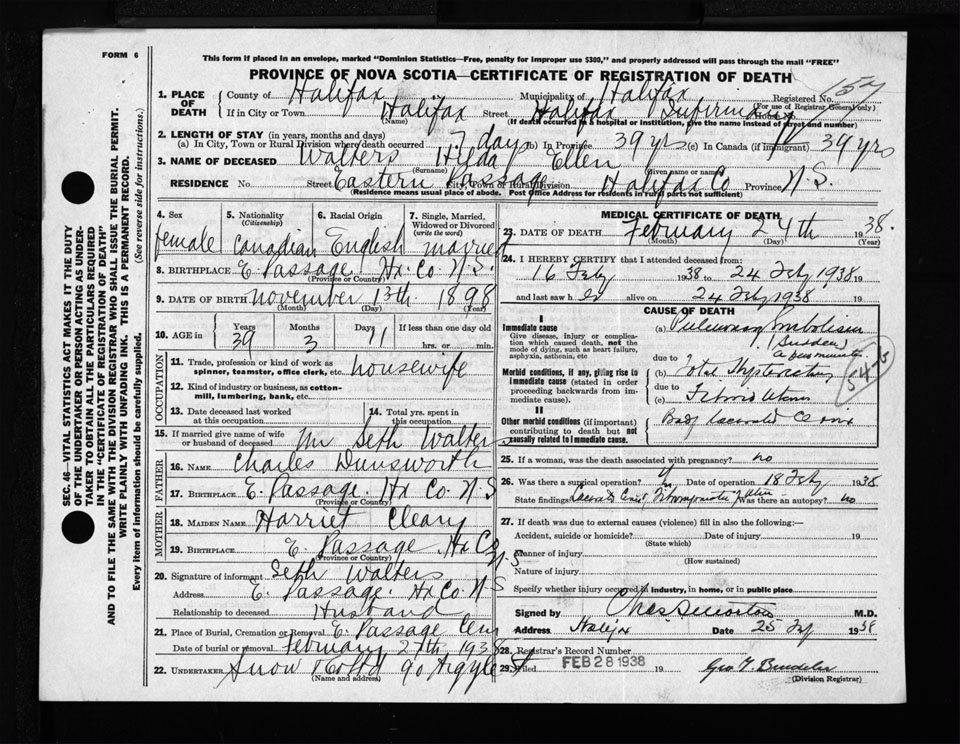 FORM 6
This form if placed in an envelope, marked "Dominion Statistics—Free, penalty for improper use $300," and properly addressed will pass through the mail "FREE"
PROVINCE OF NOVA SCOTIA—CERTIFICATE OF REGISTRATION OF DEATH
SEC. 46—VITAL STATISTICS ACT MAKES IT THE DUTY
OF THE UNDERTAKER OR PERSON ACTING AS UNDER-
TAKER TO OBTAIN ALL THE PARTICULARS REQUIRED
IN THE "CERTIFICATE OF REGISTRATION OF DEATH"
AND TO FILE THE SAME WITH THE DIVISION REGISTRAR WHO SHALL ISSUE THE BURIAL PERMIT.
WRITE PLAINLY WITH UNFADING INK. THIS IS A PERMANENT RECORD.
Every item of information should be carefully supplied. (See reverse side for instructions.)
1. PLACE OF DEATH County of Halifax Municipality of Halifax Registered No.
(For use of Registrar General only)
If in City or Town Halifax Street Halifax Infirmary
(Name) (If death occurred in a hospital or institution, give the name instead of street and number)
2. LENGTH OF STAY (in years, months and days)
(a) In City, Town or Rural Division where death occurred 7 days (b) In Province 39 yrs (c) In Canada (if immigrant) 39 yrs
3. NAME OF DECEASED Walters Hilda Ellen
(Surname) (Given name or names)
RESIDENCE No. Street Eastern Passage City, Town or Rural Division Halifax Co Province N.S.
(Residence means usual place of abode. Post Office Address for residents in rural parts not sufficient)
4. Sex female
5. Nationality (Citizenship) Canadian
6. Racial Origin English
7. Single, Married, Widowed or Divorced (write the word) married
8. BIRTHPLACE E Passage Hx. Co. N.S.
(Province or Country)
9. DATE OF BIRTH November 13th 1898
(Month) (Day) (Year)
10. AGE in Years 39 Months 3 Days 11 If less than one day old hrs. or min.
OCCUPATION
11. Trade, profession or kind of work as spinner, teamster, office clerk, etc. housewife
12. Kind of industry or business, as cotton-mill, lumbering, bank, etc.
13. Date deceased last worked at this occupation
14. Total yrs. spent in this occupation
15. If married give name of wife or husband of deceased Mr Seth Walters
FATHER
16. NAME Charles Dunsworth
17. BIRTHPLACE E. Passage. Hx Co. N.S
(Province or Country)
MOTHER
18. MAIDEN NAME Harriet Cleary
19. BIRTHPLACE E. Passage Hx Co N.S
(Province or Country)
20. Signature of informant Seth Walters
Address E. Passage. Hx Co. N.S
Relationship to deceased Husband
21. Place of Burial, Cremation or Removal E. Passage Cem
Date of burial or removal February 27th 1938
22. UNDERTAKER Snow & Co Ltd 90 Argyle St
(Name and address)
MEDICAL CERTIFICATE OF DEATH
23. DATE OF DEATH February 24th 1938.
(Month) (Day) (Year)
24. I HEREBY CERTIFY that I attended deceased from:
16 Feby 1938 to 24 Feby 1938 19
and last saw h er alive on 24 Feby 1938 19
CAUSE OF DEATH
I
Immediate cause
Give disease, injury or complication which caused death, not the mode of dying, such as heart failure, asphyxia, asthenia, etc
(a) Pulmonary Embolism
(Sudden)
a few minutes
Morbid conditions, if any, giving rise to immediate cause (stated in order proceeding backwards from immediate cause).
due to
(b) Total Hysterectomy
due to
(c) Fibroid Uterus
II
Other morbid conditions (if important) contributing to death but not causally related to immediate cause.
Bad lacerated Cervix
25. If a woman, was the death associated with pregnancy? no
26. Was there a surgical operation? Date of operation 18 Feby 1938
State findings Was there an autopsy? no
27. If death was due to external causes (violence) fill in also the following:—
Accident, suicide or homicide? Date of injury 19
(State which)
Manner of injury
(How sustained)
Nature of injury
Specify whether injury occurred in industry, in home, or in public place
Signed by M.D.
Address Halifax Date 25 Feby 1938
28. Registrar's Record Number
29. Filed FEB 28 1938 19
(Division Registrar)